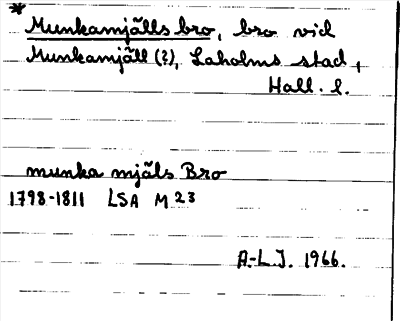 *
Munkamjälls bro, bro vid
Munkamjäll (?), Laholms stad,
Hall. l.
munka mjäls Bro
1798-1811 LSA M 23
A.-L.J. 1966.